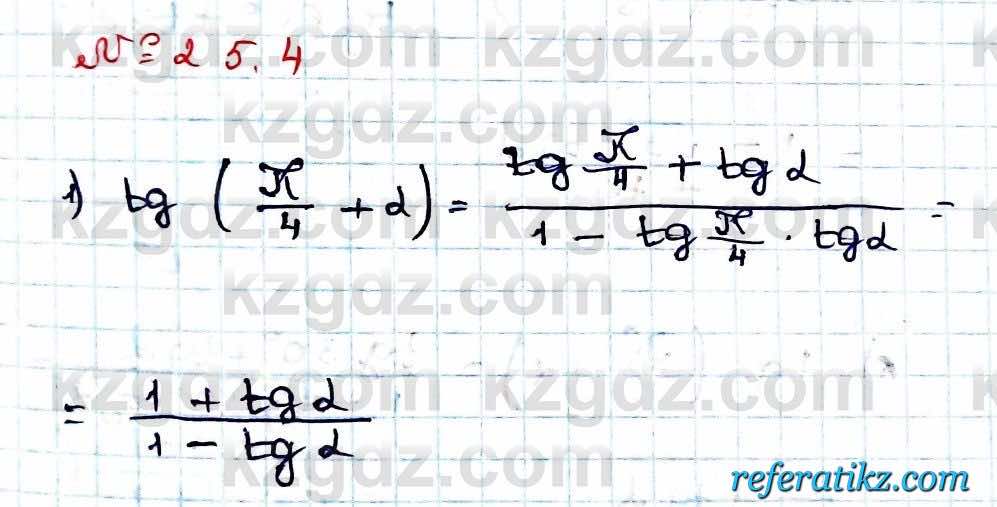 № 25.4
1) tg (π/4 + α) = (tg π/4 + tg α)/(1 - tg π/4 · tg α) =
= (1 + tg α)/(1 - tg α)
kzgdz.com kzgdz.com
kzgdz.com
kzgdz.com kzgdz.com
kzgdz.com
kzgdz.com kzgdz.com
kzgdz.com
referatikz.com